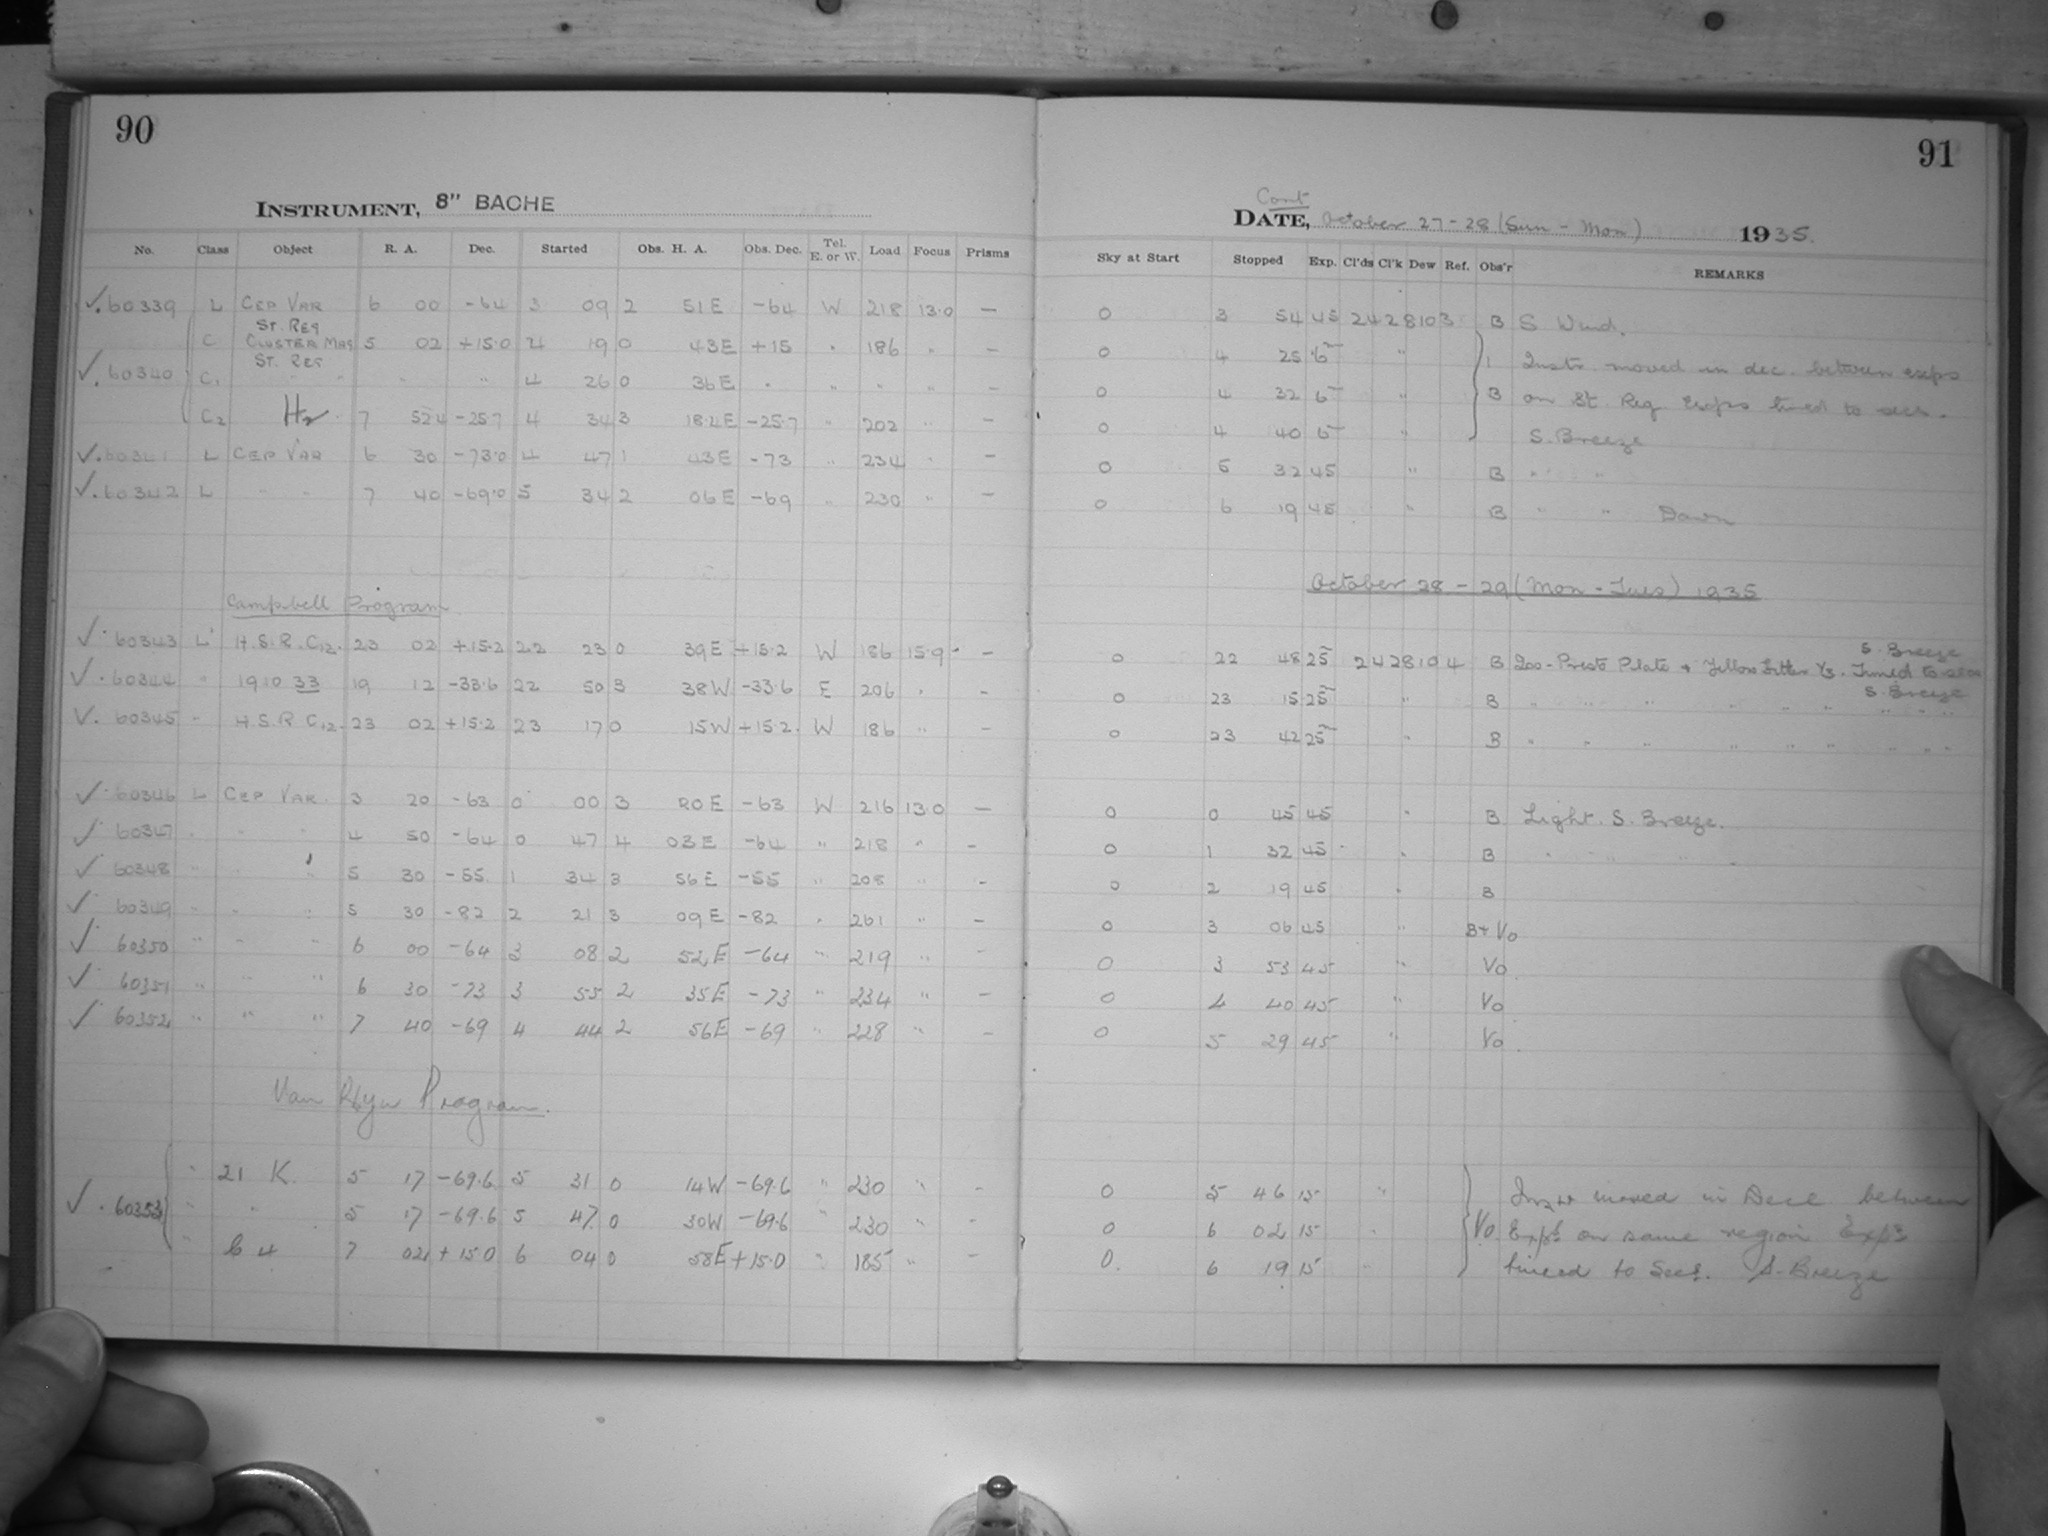 90
INSTRUMENT, 8" BACHE
No. Class Object R. A. Dec. Started Obs. H. A. Obs. Dec. Tel. E. or W. Load Focus Prisms
✓. 60339 L CEP VAR 6 00 -64 3 09 2 51 E -64 W 218 13.0 —
ST. REG
C CLUSTER MAG 5 02 +15.0 4 19 0 43E +15 " 186 " —
ST. REG
✓. 60340 C1 " " " " 4 26 0 36 E " " " " —
C2 H2 7 524 -25.7 4 34 3 18.2E -25.7 " 202 " —
✓. 60341 L CEP VAR 6 30 -73.0 4 47 1 43E -73 " 234 " —
✓. 60342 L " " 7 40 -69.0 5 34 2 06 E -69 " 230 " —
Campbell Program
✓ 60343 L H.S.R. C12. 23 02 +15.2 22 23 0 39E +15.2 W 186 15.9 —
✓ 60344 " 1910 33 19 12 -33.6 22 50 3 38W -33.6 E 206 " —
✓. 60345 " H.S.R C12. 23 02 +15.2 23 17 0 15W +15.2 W 186 " —
✓ 60346 L CEP VAR. 3 20 -63 0 00 3 20 E -63 W 216 13.0 —
✓ 60347 " " " 4 50 -64 0 47 4 03 E -64 " 218 " —
✓ 60348 " " " 5 30 -55 1 34 3 56 E -55 " 208 " —
✓ 60349 " " " 5 30 -82 2 21 3 09 E -82 " 261 " —
✓ 60350 " " " 6 00 -64 3 08 2 52 E -64 " 219 " —
✓ 60351 " " " 6 30 -73 3 55 2 35 E -73 " 234 " —
✓ 60352 " " " 7 40 -69 4 44 2 56 E -69 " 228 " —
Van Rhyn Program.
" 21 K. 5 17 -69.6 5 31 0 14W -69.6 " 230 " —
✓ . 60353 " " 5 17 -69.6 5 47 0 30W -69.6 " 230 " —
" C 4 7 02 +15.0 6 04 0 58E +15.0 " 185 " —
91
Cont
DATE, October 27-28 (Sun - Mon) 1935.
Sky at Start Stopped Exp. Cl'ds Cl'k Dew Ref. Obs'r REMARKS
0 3 54 45 24 28 10 3 B S Wind.
0 4 25 6 " 1 Instr. moved in dec. between exps
0 4 32 6 " B on St. Reg Exps timed to secs.
0 4 40 6 " S. Breeze
0 5 32 45 " B " "
0 6 19 45 " B " " Dawn
October 28 - 29 (Mon - Tues) 1935
S. Breeze
0 22 48 25 24 28 10 4 B Iso-Presto Plate + Yellow Filter Timed to
S. Breeze
0 23 15 25 " B " " " " " " " "
0 23 42 25 " B " " " " " " " "
0 0 45 45 " B Light. S. Breeze.
0 1 32 45 " B " " "
0 2 19 45 " B
0 3 06 45 " B+Vo
0 3 53 45 " Vo
0 4 40 45 " Vo
0 5 29 45 " Vo
0 5 46 15 " Instr moved in Decl between
0 6 02 15 " Vo Exps on same region Exps
0. 6 19 15 " timed to Secs. S. Breeze